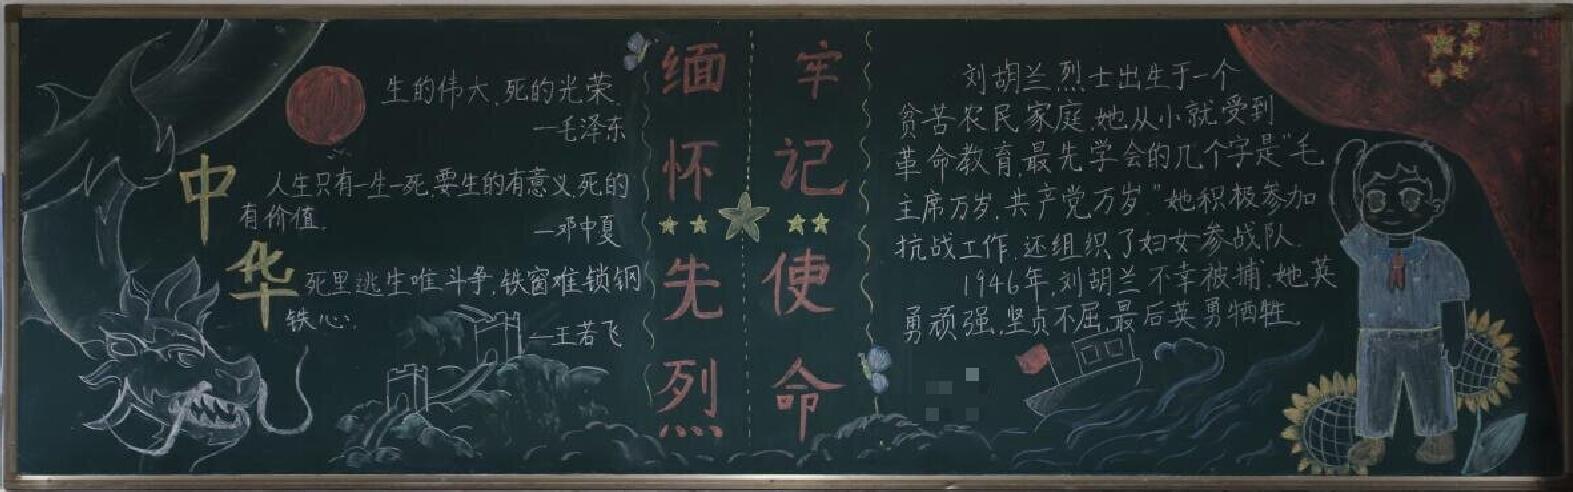 中华
生的伟大,死的光荣.
—毛泽东
人生只有一生一死,要生的有意义,死的
有价值.
—邓中夏
死里逃生唯斗争,铁窗难锁钢
铁心.
—王若飞
缅怀先烈
牢记使命
刘胡兰烈士出生于一个
贫苦农民家庭,她从小就受到
革命教育,最先学会的几个字是“毛
主席万岁,共产党万岁”她积极参加
抗战工作,还组织了妇女参战队.
1946年,刘胡兰不幸被捕,她英
勇顽强,坚贞不屈,最后英勇牺牲.